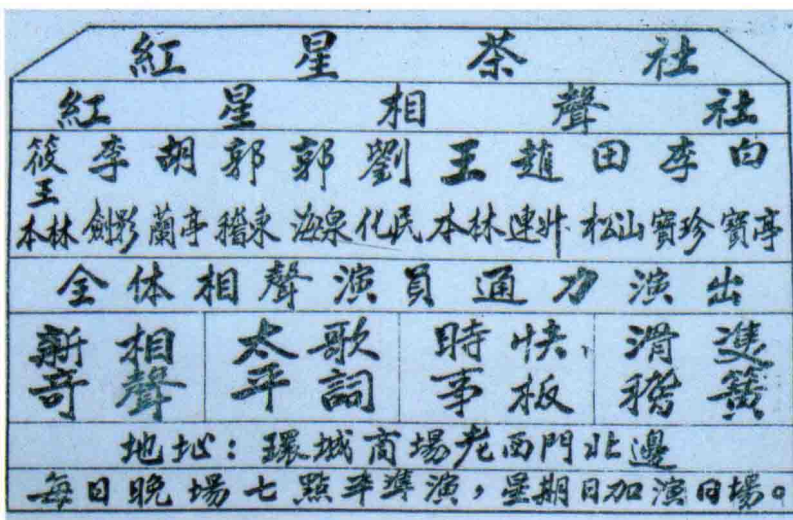 紅星茶社
紅星相聲社
筱王本林
李劍影
胡蘭亭
郭稽東
郭海泉
劉化民
王本林
趙連升
田松山
李寶珍
白寶亭
全体相聲演員通力演出
新奇相聲
太平歌詞
時事快板
滑稽雙簧
地址：環城商場老西門北邊
每日晚場七點半準演，星期日加演日場。